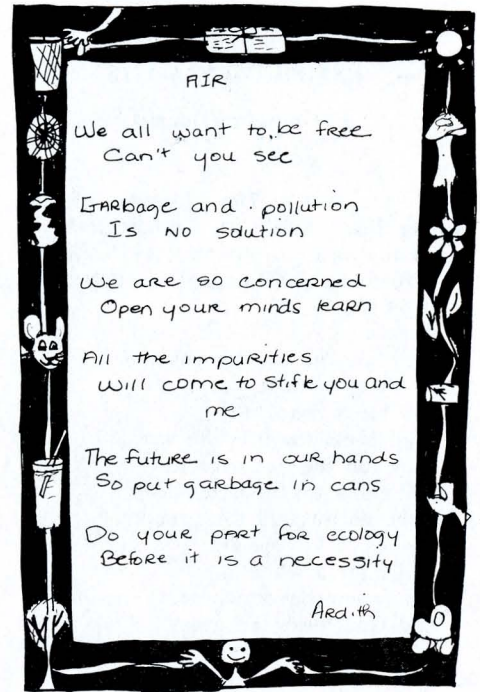 AIR
We all want to be free
Can't you see
Garbage and pollution
Is no solution
We are so concerned
Open your minds learn
All the impurities
will come to stifle you and
me
The future is in our hands
So put garbage in cans
Do your part for ecology
Before it is a necessity
Ardith